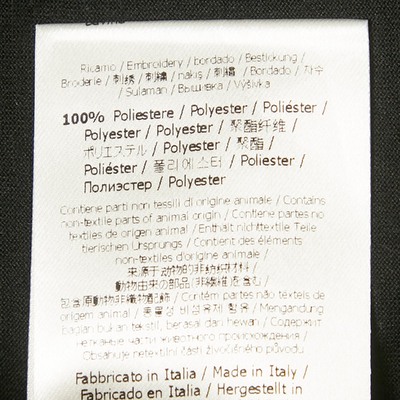 Ricamo / Embroidery / bordado / Bestickung /
Broderie / 刺绣 / 刺繍 / nakış / 刺繡 / Bordado / 자수
/ Sulaman / Вышивка / Výšivka
100% Poliestere / Polyester / Poliéster /
Polyester / Polyester / 聚酯纤维 /
ポリエステル / Polyester / 聚酯 /
Poliéster / 폴리에스터 / Poliester /
Полиэстер / Polyester
Contiene parti non tessili di origine animale / Contains
non-textile parts of animal origin / Contiene partes no
textiles de origen animal / Enthält nichttextile Teile
tierischen Ursprungs / Contient des éléments
non-textiles d'origine animale /
来源于动物的非纺织材料 /
動物由来の部品 (非繊維を含む) /
包含原動物非織物配飾 / Contém partes não têxteis de
origem animal / 동물성 비섬유제 함유 / Mengandung
bagian bukan tekstil, berasal dari hewan / Содержит
нетканые части животного происхождения /
Obsahuje netextilní části živočišného původu
Fabbricato in Italia / Made in Italy /
Fabricado en Italia / Hergestellt in